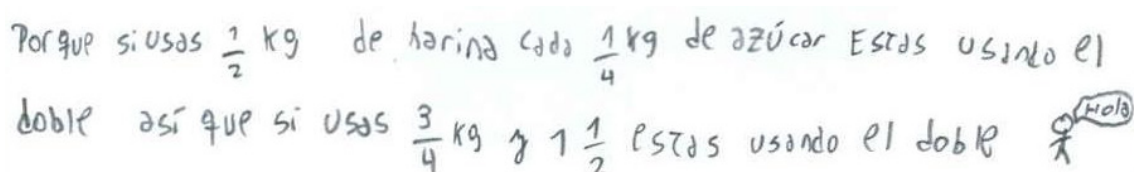 Porque si usas 1/2 kg de harina cada 1/4 kg de azúcar Estas usando el
doble así que si usas 3/4 kg y 1 1/2 estas usando el doble Hola